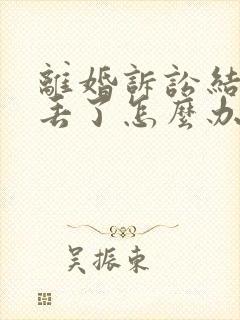 離婚訴訟結
丟了怎麼办
吴振東